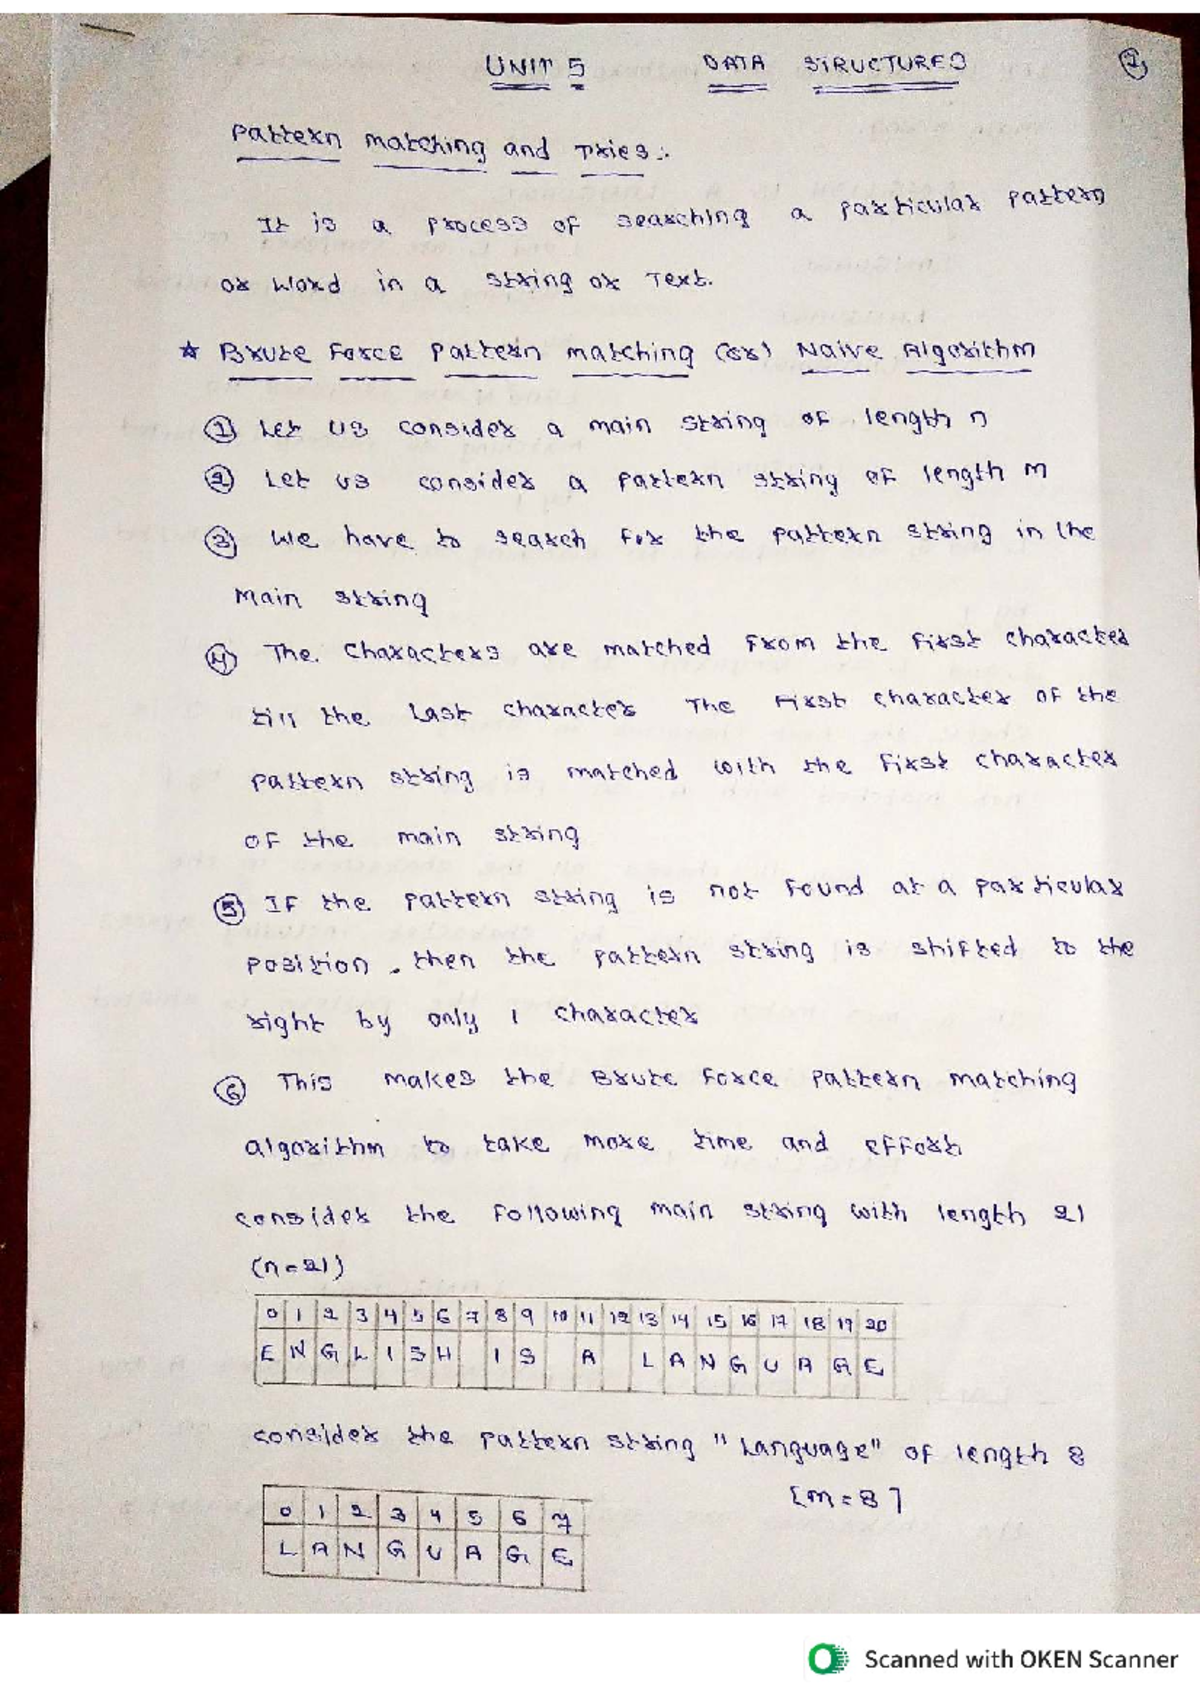 UNIT 5 DATA STRUCTURES 1
Pattern matching and Tries:
It is a process of searching a particular pattern
or word in a string or Text.
☆ Brute Force Pattern matching (or) Naive Algorithm
① Let us consider a main string of length n
② Let us consider a pattern string of length m
③ We have to search for the pattern string in the
main string
④ The characters are matched from the first character
till the Last character The First character of the
pattern string is matched with the first character
of the main string
⑤ If the pattern string is not found at a particular
position. then the pattern string is shifted to the
right by only 1 character
⑥ This makes the Brute force pattern matching
algorithm to take more time and effort
consider the following main string with length 21
(n=21)
0 1 2 3 4 5 6 7 8 9 10 11 12 13 14 15 16 17 18 19 20
E N G L I S H I S A L A N G U A G E
consider the pattern string "Language" of length 8
[m=8]
0 1 2 3 4 5 6 7
L A N G U A G E
Scanned with OKEN Scanner